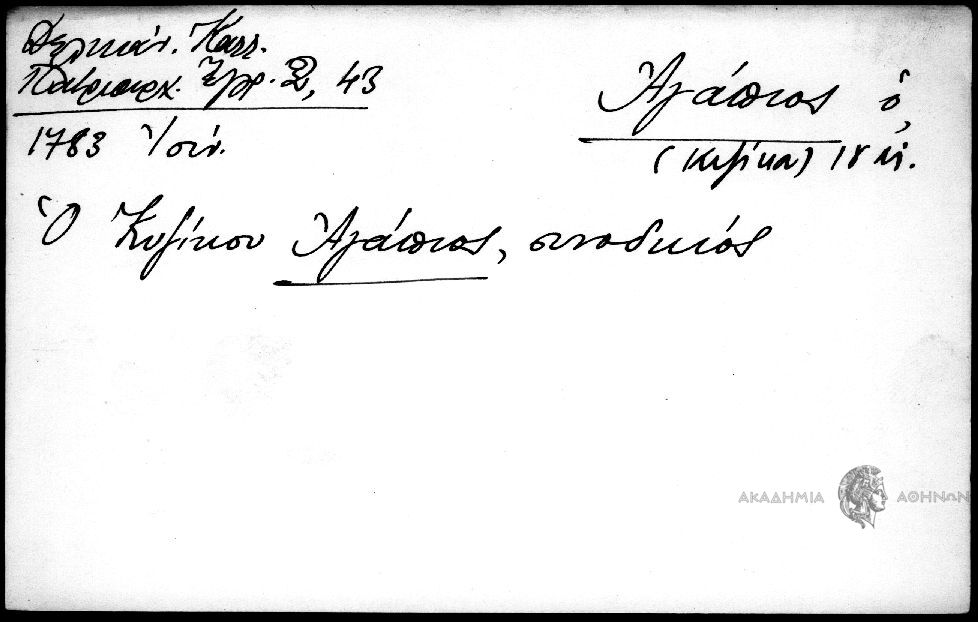 Δελικάν. Καλλ.
Πατριαρχ. Ἔγγρ. 2, 43
1783 Ἰουν.
Ἀγάπιος ὁ,
(Κυζίκου) 18 αἰ.
Ὁ Κυζίκου Ἀγάπιος, συνοδικός
ΑΚΑΔΗΜΙΑ ΑΘΗΝΩΝ